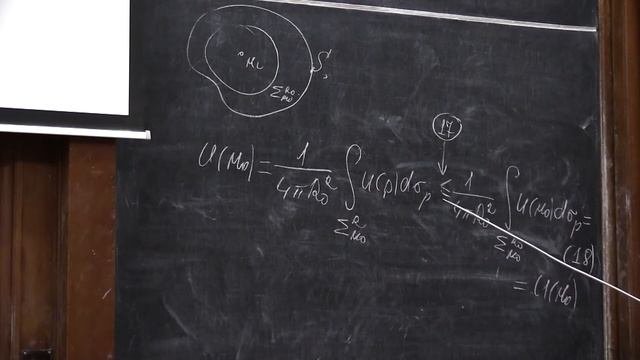 M₀ S
Σ_{M₀}^{R₀}
(17)
u(M₀) = \frac{1}{4πR₀²} ∫_{Σ_{M₀}^{R}} u(p)dσ_p ≤ \frac{1}{4πR₀²} ∫_{Σ_{M₀}^{R₀}} u(M₀)dσ_p =
(18)
= u(M₀)